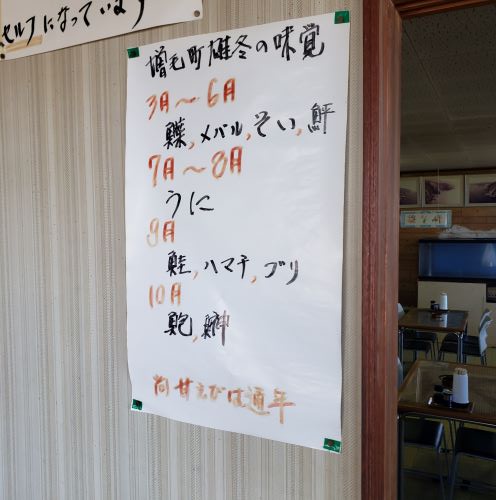 セルフになっています
増毛町雄冬の味覚
3月～6月
鰈,メバル,そい,鮃
7月～8月
うに
9月
鮭,ハマチ,ブリ
10月
鮑,鰰
尚甘えびは通年